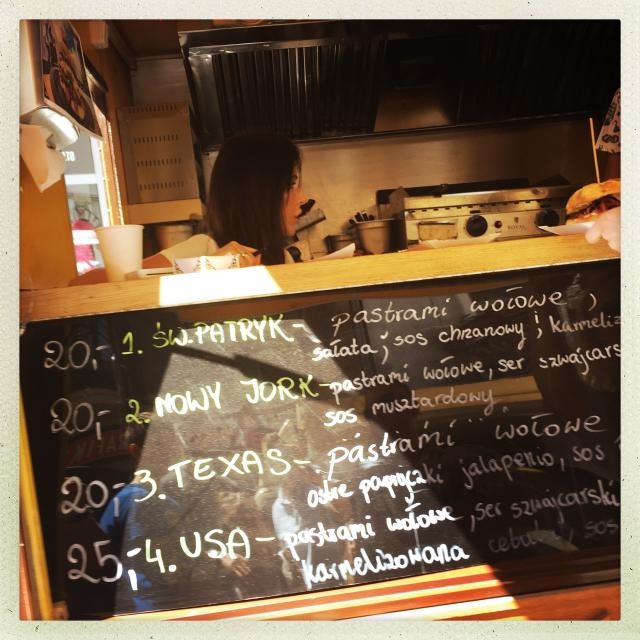 20,- 1. ŚW. PATRYK - pastrami wołowe,
sałata, sos chrzanowy i karmeliz
20,- 2. NOWY JORK - pastrami wołowe, ser szwajcars
sos musztardowy
20,- 3. TEXAS - pastrami wołowe
ostre papryczki jalapenio, sos
25,- 4. USA - pastrami wołowe, ser szwajcarski
karmelizowana cebula, sos